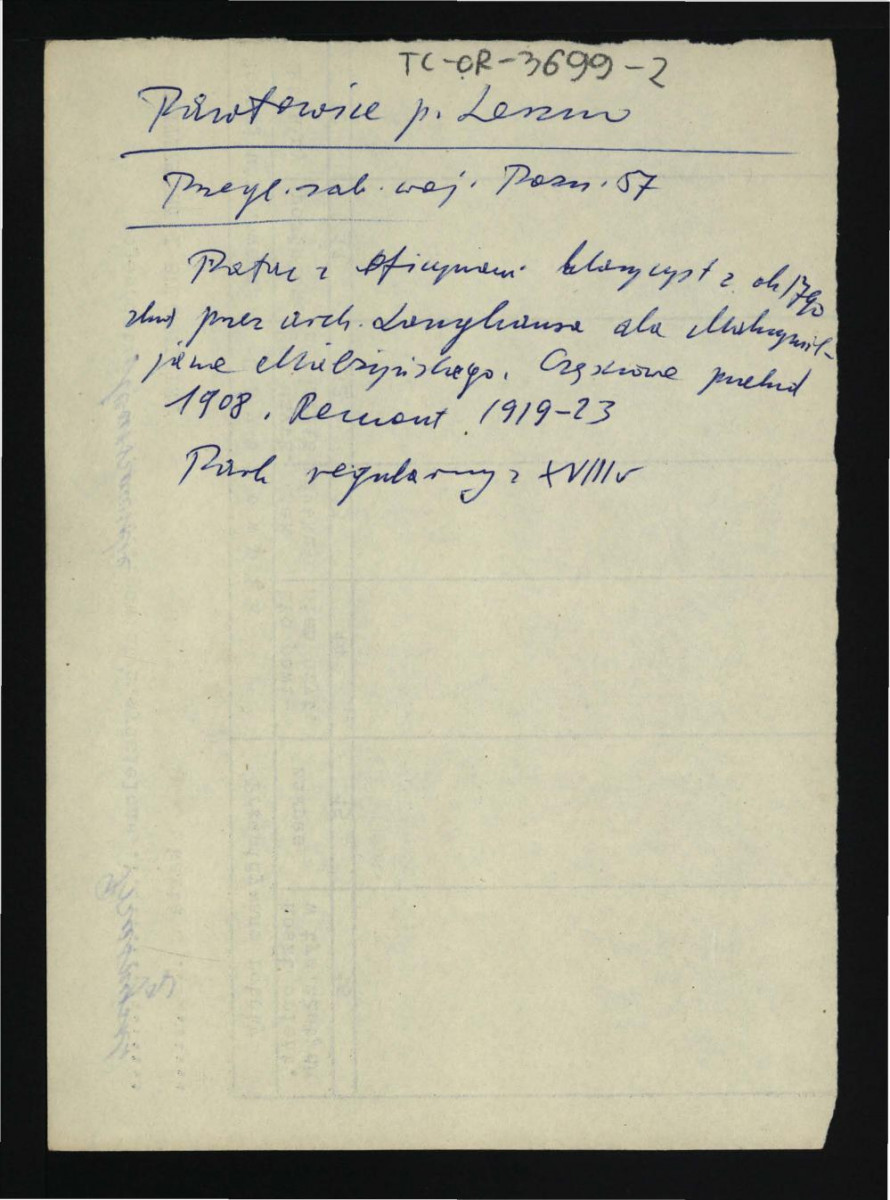 TC-OR-3699-2
Pawłowice p. Leszno
Przegl. zab. woj. Pozn. 57
Pałac z oficynami klasycyst z ok 1790
zbud przez arch. Langhansa dla Maksymil-
jana Mielżyńskiego. Częściowa przebud
1908. Remont 1919-23
Park regularny z XVIII w